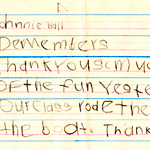 ohnnie hall
Demembers
Thankyou
Of the fun Yeste
OUr CLass rode the
the boat. Thank